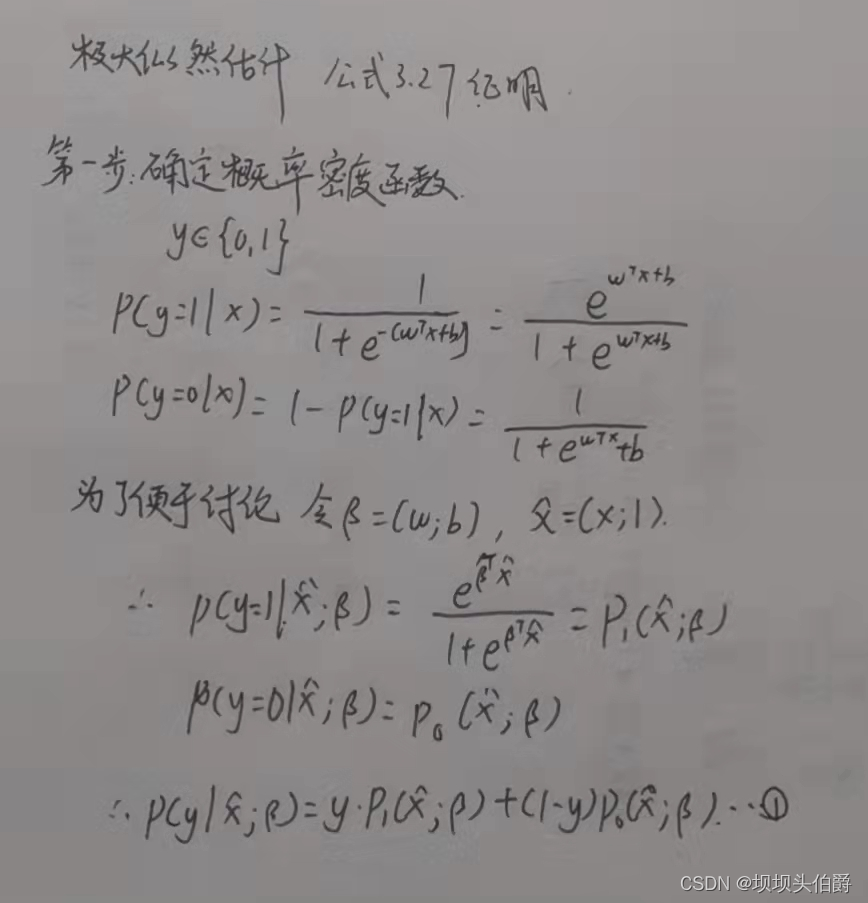 极大似然估计 公式3.27证明.
第一步:确定概率密度函数.
y∈{0,1}
P(y=1|x)= 1/(1+e^{-(w^Tx+b)}) = e^{w^Tx+b}/(1+e^{w^Tx+b})
P(y=0|x)= 1-P(y=1|x)= 1/(1+e^{w^Tx}+b)
为了便于讨论 令β=(w;b), x̂=(x;1).
∴ p(y=1|x̂;β)= e^{β^Tx̂}/(1+e^{β^Tx̂}) = P₁(x̂;β)
p(y=0|x̂;β)= P₀(x̂;β)
∴ p(y|x̂;β)=y·P₁(x̂;β)+(1-y)P₀(x̂;β)...①
CSDN @坝坝头伯爵